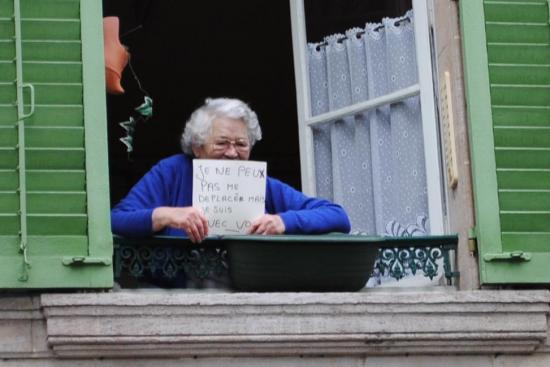 JE NE PEUX
PAS ME
DEPLACER MAIS
JE SUIS
AVEC VO